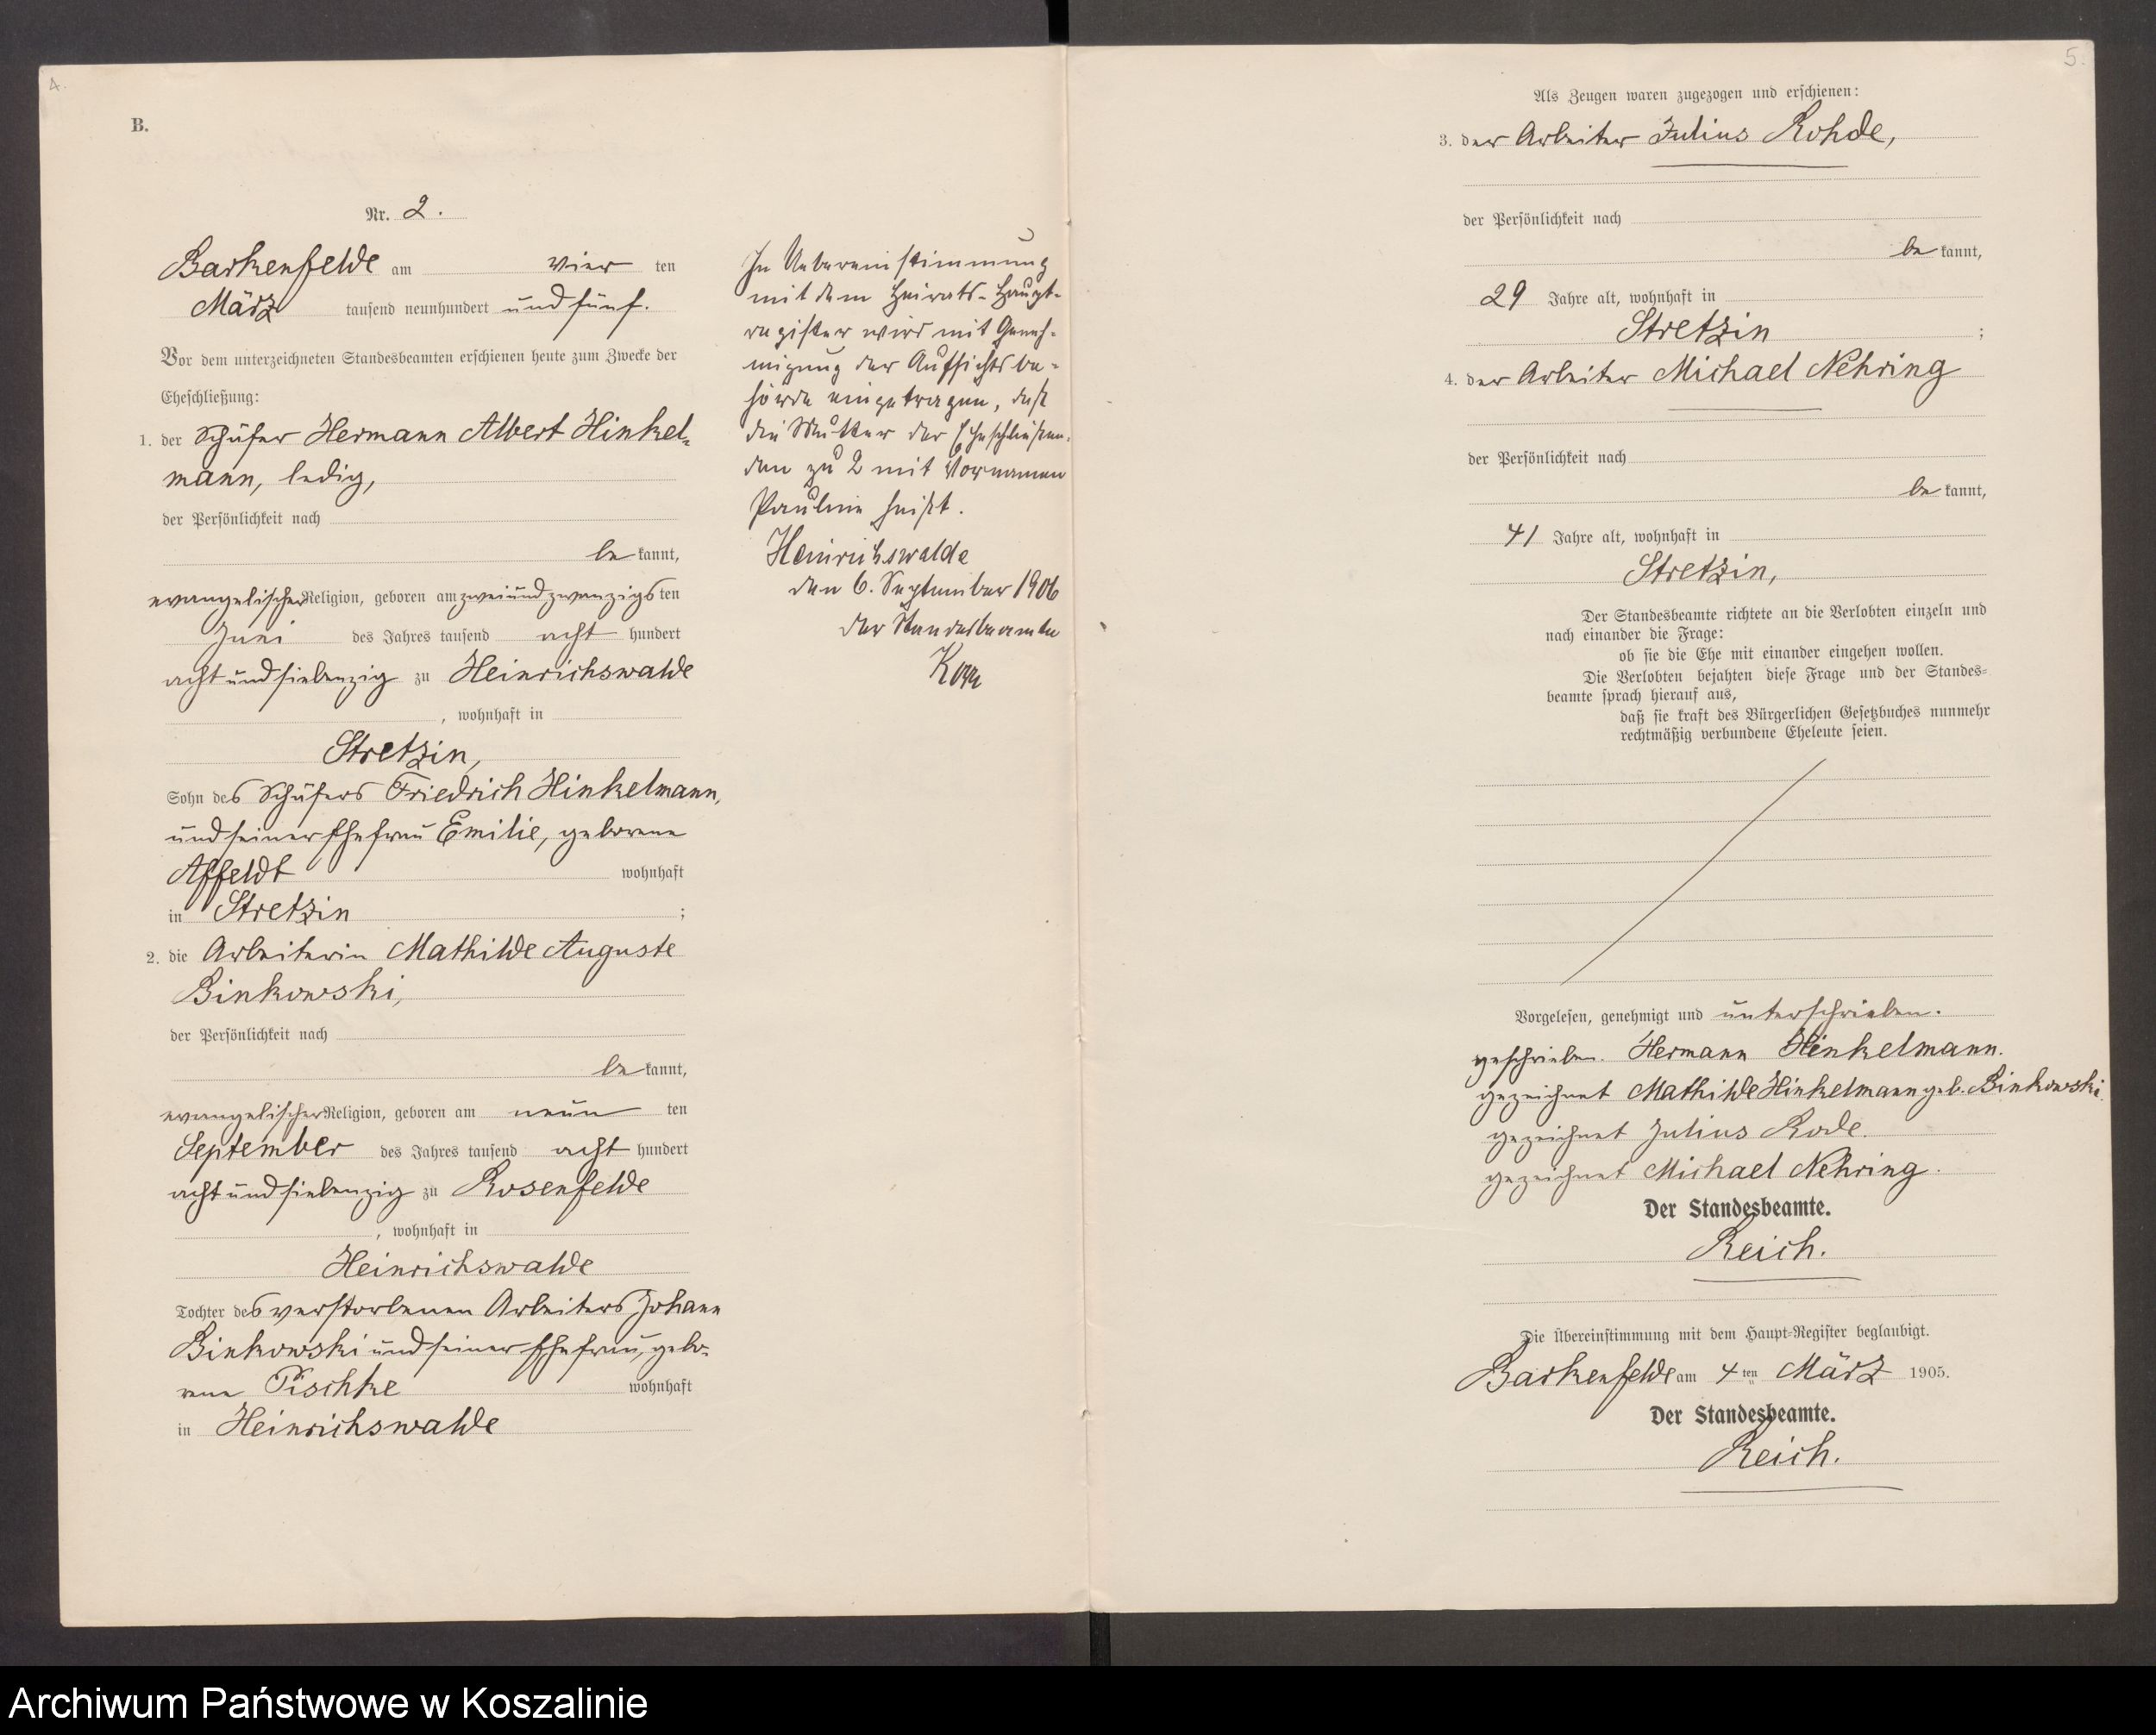 4.
B.
Nr. 2.
Barkenfelde am vier ten
März tausend neunhundert und fünf.
Vor dem unterzeichneten Standesbeamten erschienen heute zum Zwecke der
Eheschließung:
1. der Schäfer Hermann Albert Hinkel-
mann, ledig,
der Persönlichkeit nach
be kannt,
evangelischer Religion, geboren am zweiundzwanzigs ten
Juni des Jahres tausend acht hundert
acht und siebenzig zu Heinrichswalde
, wohnhaft in
Stretzin,
Sohn des Schäfers Friedrich Hinkelmann,
und seiner Ehefrau Emilie, geborene
Affeldt wohnhaft
in Stretzin ;
2. die Arbeiterin Mathilde Auguste
Binkowski,
der Persönlichkeit nach
be kannt,
evangelischer Religion, geboren am neun ten
September des Jahres tausend acht hundert
acht und siebenzig zu Rosenfelde
, wohnhaft in
Heinrichswalde
Tochter des verstorbenen Arbeiters Johann
Binkowski und seiner Ehefrau, gebo-
rene Pischke wohnhaft
in Heinrichswalde
In Uebereinstimmung
mit dem Heirats-Haupt-
register wird mit Geneh-
migung der Aufsichtsbe-
hörde eingetragen, daß
die Mutter der Eheschließen-
den zu 2 mit Vornamen
Pauline heißt.
Heinrichswalde
den 6. September 1906
Der Standesbeamte
5.
Als Zeugen waren zugezogen und erschienen:
3. der Arbeiter Julius Rohde,
der Persönlichkeit nach
be kannt,
29 Jahre alt, wohnhaft in
Stretzin ;
4. der Arbeiter Michael Nehring
der Persönlichkeit nach
be kannt,
41 Jahre alt, wohnhaft in
Stretzin,
Der Standesbeamte richtete an die Verlobten einzeln und
nach einander die Frage:
ob sie die Ehe mit einander eingehen wollen.
Die Verlobten bejahten diese Frage und der Standes-
beamte sprach hierauf aus,
daß sie kraft des Bürgerlichen Gesetzbuches nunmehr
rechtmäßig verbundene Eheleute seien.
Vorgelesen, genehmigt und unterschrieben.
geschrieben. Hermann Hinkelmann.
gezeichnet Mathilde Hinkelmann geb. Binkowski.
gezeichnet Julius Rode.
gezeichnet Michael Nehring.
Der Standesbeamte.
Reich.
Die Übereinstimmung mit dem Haupt-Register beglaubigt.
Barkenfelde am 4 ten März 1905.
Der Standesbeamte.
Reich.
Archiwum Państwowe w Koszalinie